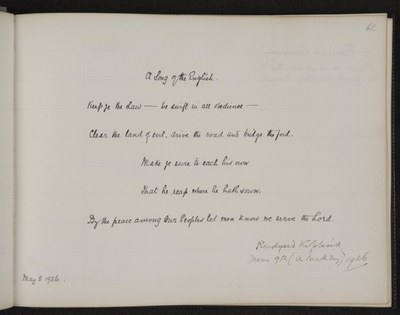 A Song of the English.
Keep ye the Law — be swift in all obedience —
Clear the land of evil, drive the road and bridge the ford.
Make ye sure to each his own
That he reap where he hath sown.
By the peace among Our Peoples let men know we serve the Lord.
Rudyard Kipling
9th (a Sunday) 1926
May 8 1926.